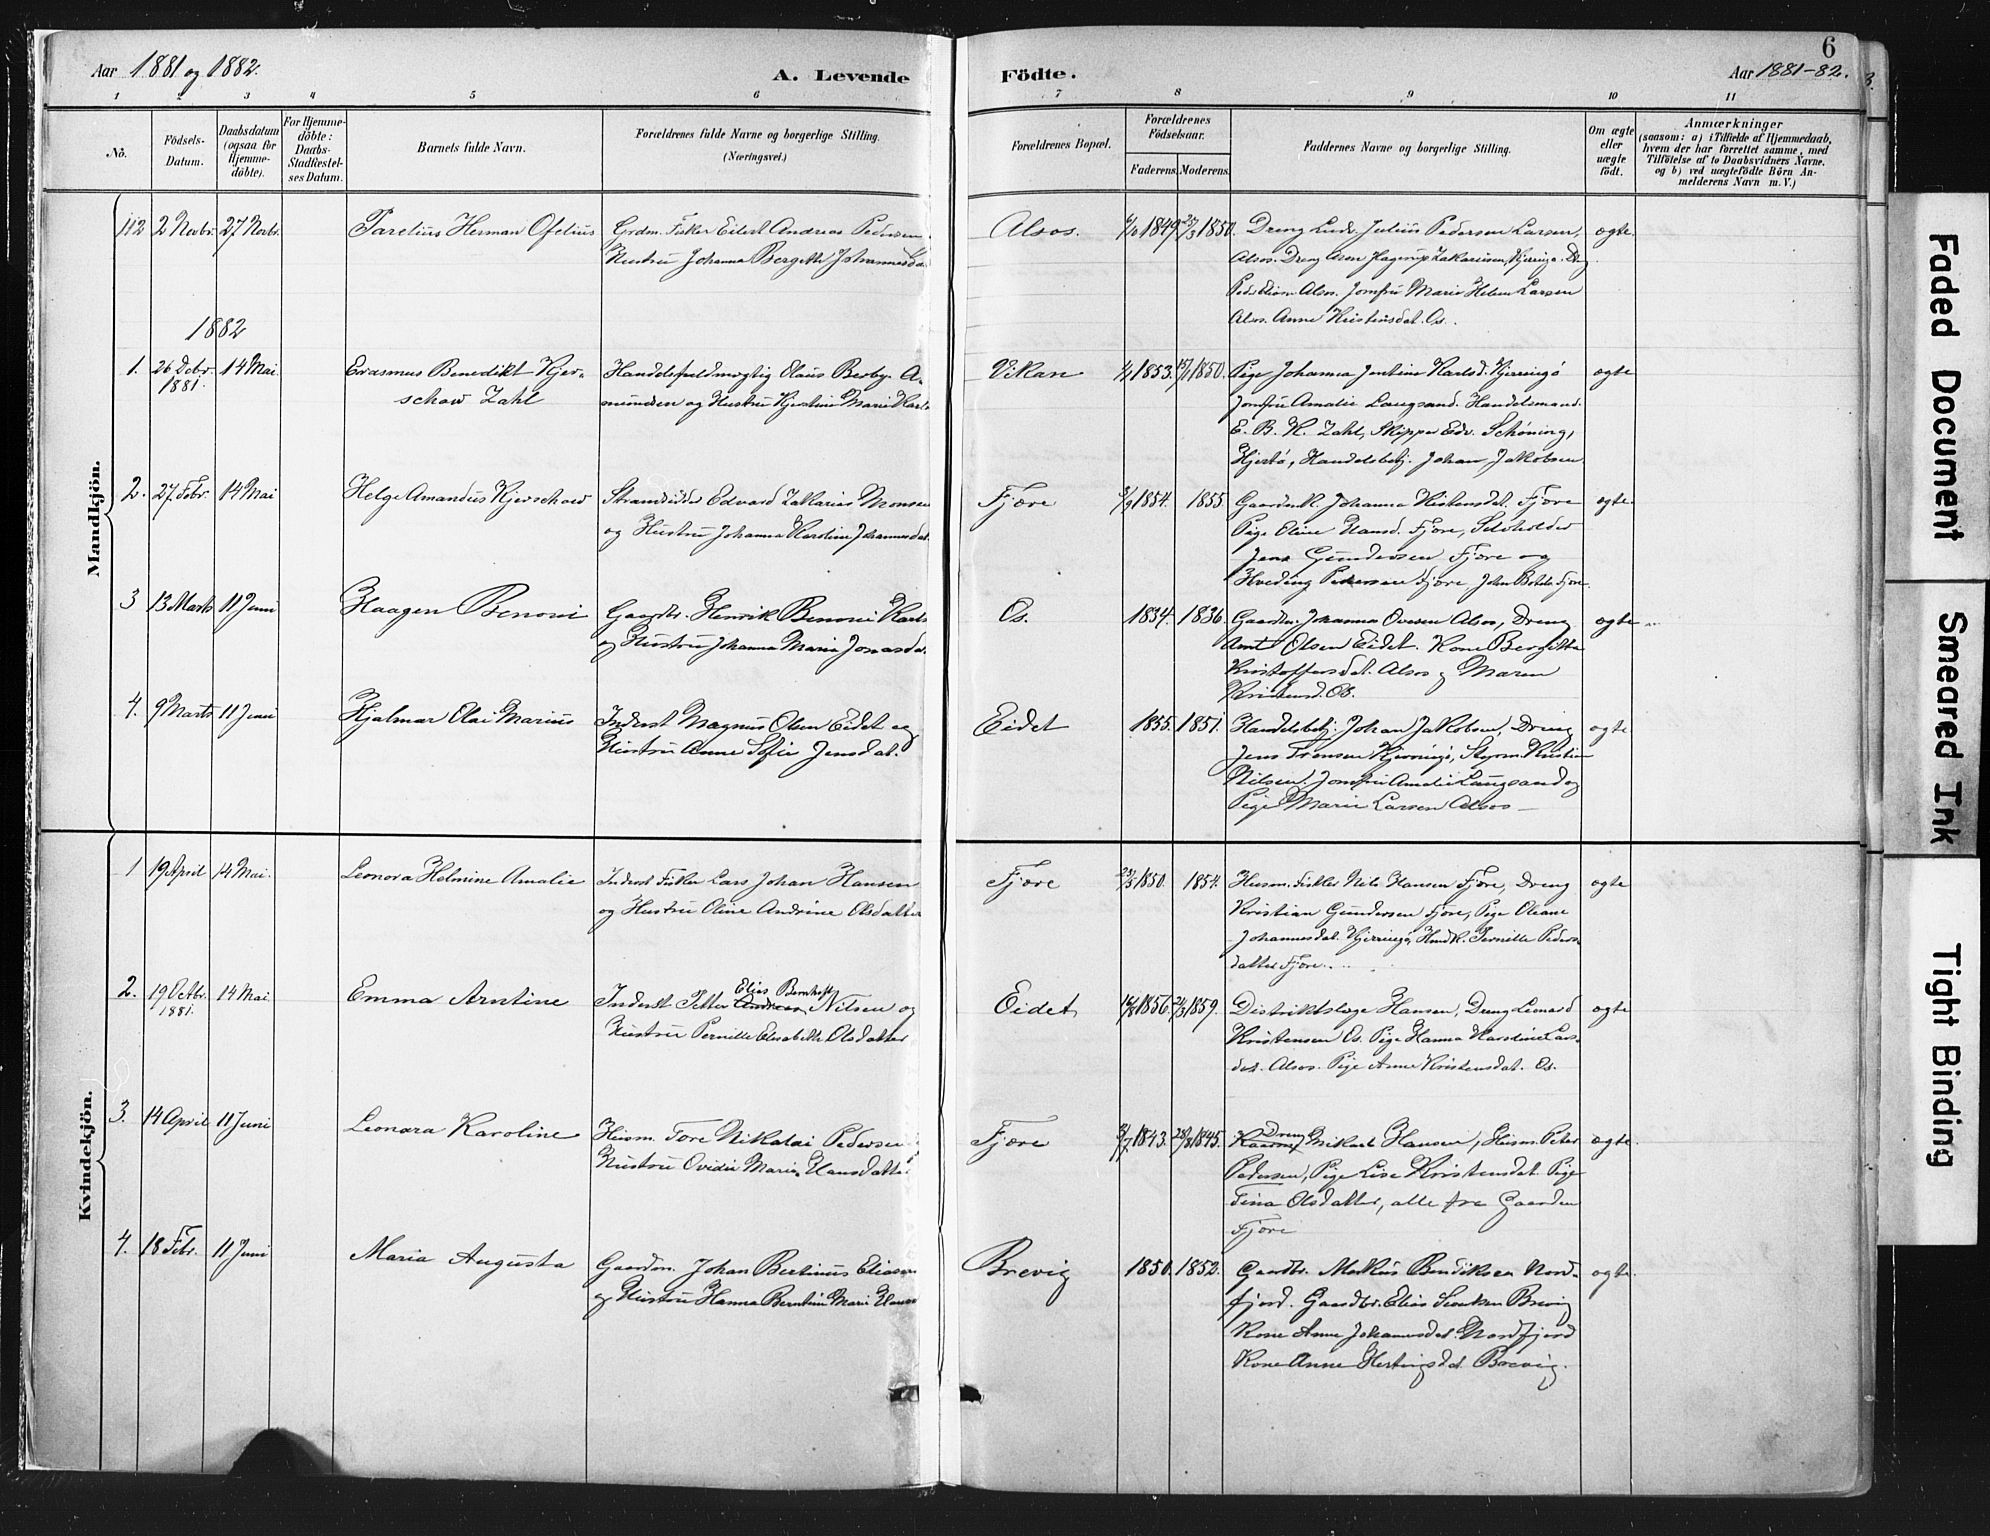 6
Aar 1881 og 1882.
A. Levende
Födte.
Aar 1881-82.
1 2 3 4 5 6 7 8 9 10 11
No.
Födsels-
Datum.
Daabsdatum
(ogsaa for
Hjemme-
döbte).
For Hjemme-
döbte:
Daabs-
Stadfestel-
ses Datum.
Barnets fulde Navn.
Forældrenes fulde Navne og borgerlige Stilling.
(Næringsvei.)
Forældrenes Bopæl.
Forældrenes
Födselsaar.
Faderens. Moderens.
Faddernes Navne og borgerlige Stilling.
Om ægte
eller
uægte
födt.
Anmærkninger
(saasom: a) i Tilfælde af Hjemmedaab,
hvem der har forrettet samme, med
Tilföielse af to Daabsvidners Navne.
og b) ved uægtefödte Börn An-
melderens Navn m. V.)
Mandkjön.
112 2 Novbr. 27 Novbr. Parelius Herman Ofelius Grdm. Fisker Eilert Andreas Pedersen
Hustru Johanna Bergitte
Alsos. 6/12 1849 25/3 1850. Dreng Ludv. Julius Pedersen Larsen, ægte.
Alsos. Dreng Hagerup Zakariasen, Kjerringø.
Alsos. Jomfru Marie Helene Larsen
Alsos. Anne Kristensdat. Os.
1882
1. 26 Decbr. 1881. 14 Mai. Erasmus Benedikt Kjer-
schow Zahl
Handelsfuldmægtig Olaus Berby A-
mundsen og Hustru Kjerstine Marie
Vikan 1853. 1850. Pige Johanna Jentine Karlsd. Kjerringø ægte
Jomfru Amalie Langsand. Handelsmand.
E. B. K. Zahl, Skipper Edv. Schöning,
Handelsbetj. Johan Jakobsen
2. 27 Febr. 14 Mai Helge Amandus Kjerschow Strandsidder Edvard Zakarias Monsen
og Hustru Johanna Karoline Johannesdat.
Fjære 1854. 1855. Johanna Kristensdat. Fjære ægte.
Pige Oline Hansd. Fjære, Selvholder
Jens Gundersen Fjære og
Hveding Pedersen Fjære
3 13 Marts 11 Juni Haagen Benoni Gaardbr. Henrik Benoni
og Hustru Johanna Maria
Os. 1834. 1836. Gaardm. Johannes Ovesen Alsos, Dreng ægte
Arnt Olsen Eidet. Kone Bergitte
Kristoffersdat. Alsos og Maren
Kristensd. Os.
4. 9 Marts 11 Juni Hjalmar Olai Marius Inderst Magnus Olsen Eidet og
Hustru Anne Sofie Jensdat.
Eidet 1855. 1851. Handelsbetj. Johan Jakobsen, Dreng ægte
Jens Kjerringø, Styrm. Kristian
Nilsen. Jomfru Amalie Langsand og
Pige Marie Larsen Alsos
Kvindekjön.
1 19 April 14 Mai. Leonora Helmine Amalie Inderst Fisker Lars Johan Hansen
og Hustru Oline Andrine Olsdatter
Fjære 23/5 1850. 1854. Husm. Fisker Nils Hansen Fjære, Dreng ægte
Kristian Gundersen Fjære, Pige Oleane
Johannesdat. Kjerringø, Pernille Peders-
datter Fjære.
2. 19 Octbr. 1881. 14 Mai Emma Arntine Inderst Petter Andreas Elias Bernhoft Nilsen og
Hustru Pernille Elisabeth Olsdatter
Eidet 1856. 1859. Distriktslæge Hansen, Dreng Leonard ægte
Kristensen Os. Pige Hanna Karoline Lars-
dat. Alsos. Pige Anne Kristensdat. Os.
3. 14 April 11 Juni Leonora Karoline Husm. Tore Nikolai Pedersen
Hustru Ovidie Maria Hansdatter
Fjære 1843. 1845. Dreng Mikael Hansen, Husm. Peter ægte
Pedersen, Pige Lise Kristensdat. Pige
Tina Olsdatter, alle fra Gaarden
Fjære
4. 18 Febr. 11 Juni Maria Augusta Gaardm. Johan Bertinus Eliasen
og Hustru Hanna Berntine Marie
Brevig 1850. 1852. Gaardbr. Markus Bendiksen Nord- ægte.
fjord. Gaardbr. Elias Brevig
Kone Anne Johannesdat. Nordfjord
Kone Anne Hertingsdat. Brevig.
Faded Document
Smeared Ink
Tight Binding